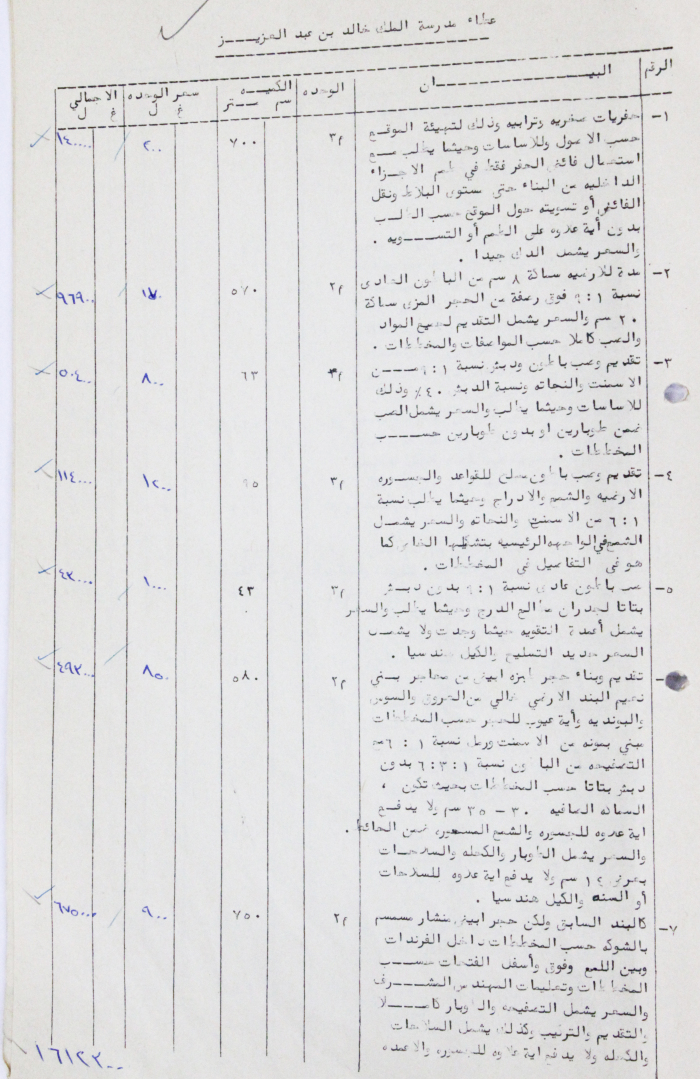 عطاء مدرسة الملك خالد بن عبد العزيـــز
الرقم البيـــــــــان الوحده الكميـــه سعر الوحده الاجمالي
سم ــتر غ ل غ ل
١- حفريات صخريه وترابيه وذلك لتهيئة الموقع م٣ ٧٠٠ ٢٠٠ ١٤٠٠٠٠
حسب الاصول وللاساسات وحيثما يطلب مــع
استعمال فائض الحفر فقط في طمم الاجزاء
الداخليه من البناء حتى مستوى البلاط ونقل
الفائض أو تسويته حول الموقع حسب الطلب
بدون أية علاوه على الطمم أو التســـويه .
والسعر يشمل الدك جيدا .
٢- مدة للارضيه سماكة ٨ سم من الباطون العادى م٢ ٥٧٠ ٩٦٩٠٠
نسبة ٩:١ فوق رصفة من الحجر المزى سماكة
٢٠ سم والسعر يشمل التقديم لجميع المواد
والصب كاملا حسب المواصفات والمخططات .
٣- تقديم وصب باطون ودبش نسبة ٩:١ مــــن م٣ ٦٣ ٨٠٠ ٥٠٤٠٠
الاسمنت والنحاته ونسبة الدبش ٤٠٪ وذلك
للاساسات وحيثما يطلب والسعر يشمل الصب
ضمن طوبارين او بدون طوبارين حســـب
المخططات .
٤- تقديم وصب باطون مسلح للقواعد والجسوره م٣ ٩٥ ١٢٠٠ ١١٤٠٠٠
الارضيه والشمع والادراج وحيثما يطلب نسبة
٦:١ من الاسمنت والنحاته والسعر يشمــل
الشمع في الواجهه الرئيسيه بتشكيلها الخاص كما
هو في التفاصيل في المخططات .
٥- صب باطون عادى نسبة ٩:١ بدون دبش م٣ ٤٣ ١٠٠٠ ٤٣٠٠٠
بتاتا لجدران مطالع الدرج وحيثما يطلب والسعر
يشمل أعمدة التقويه حيثما وجدت ولا يشمــل
السعر حديد التسليح والكيل هندسيا .
- تقديم وبناء حجر طبزه ابيض من محاجر بــني م٢ ٥٨٠ ٨٥٠ ٤٩٣٠٠٠
نعيم البند الارضي خالي من العروق والسوس
والبونديه وأية عيوب للحجر حسب المخططات
مبني بمونه من الاسمنت ورمل نسبة ١ : ٦ مع
التصفيحه من الباطون نسبة ٦:٣:١ بدون
دبش بتاتا حسب المخططات بحيث تكون ،
السماكه الصافيه ٣٠ - ٣٥ سم ولا يدفــع
اية علاوه للجسوره والشمع المستعير ضمن الحائط .
والسعر يشمل الطوبار والكحله والسلاحــات
بعرض ١٢ سم ولا يدفع اية علاوه للسلاحات
أو السنه والكيل هندسيا .
٧- كالبند السابق ولكن حجر ابيض منشار مسمسم م٢ ٧٥٠ ٩٠٠ ٦٧٥٠٠٠
بالشوكه حسب المخططات داخل الفرندات
وبين اللمع وفوق وأسفل الفتحات حســـب
المخططات وتعليمات المهندس المشـــرف
والسعر يشمل التصفيحه والطوبار كامـــلا
والتقديم والترتيب وكذلك يشمل السلاحات
والكحله ولا يدفع اية علاوه للجسوره والاعمده
١٦١٢٣٠٠